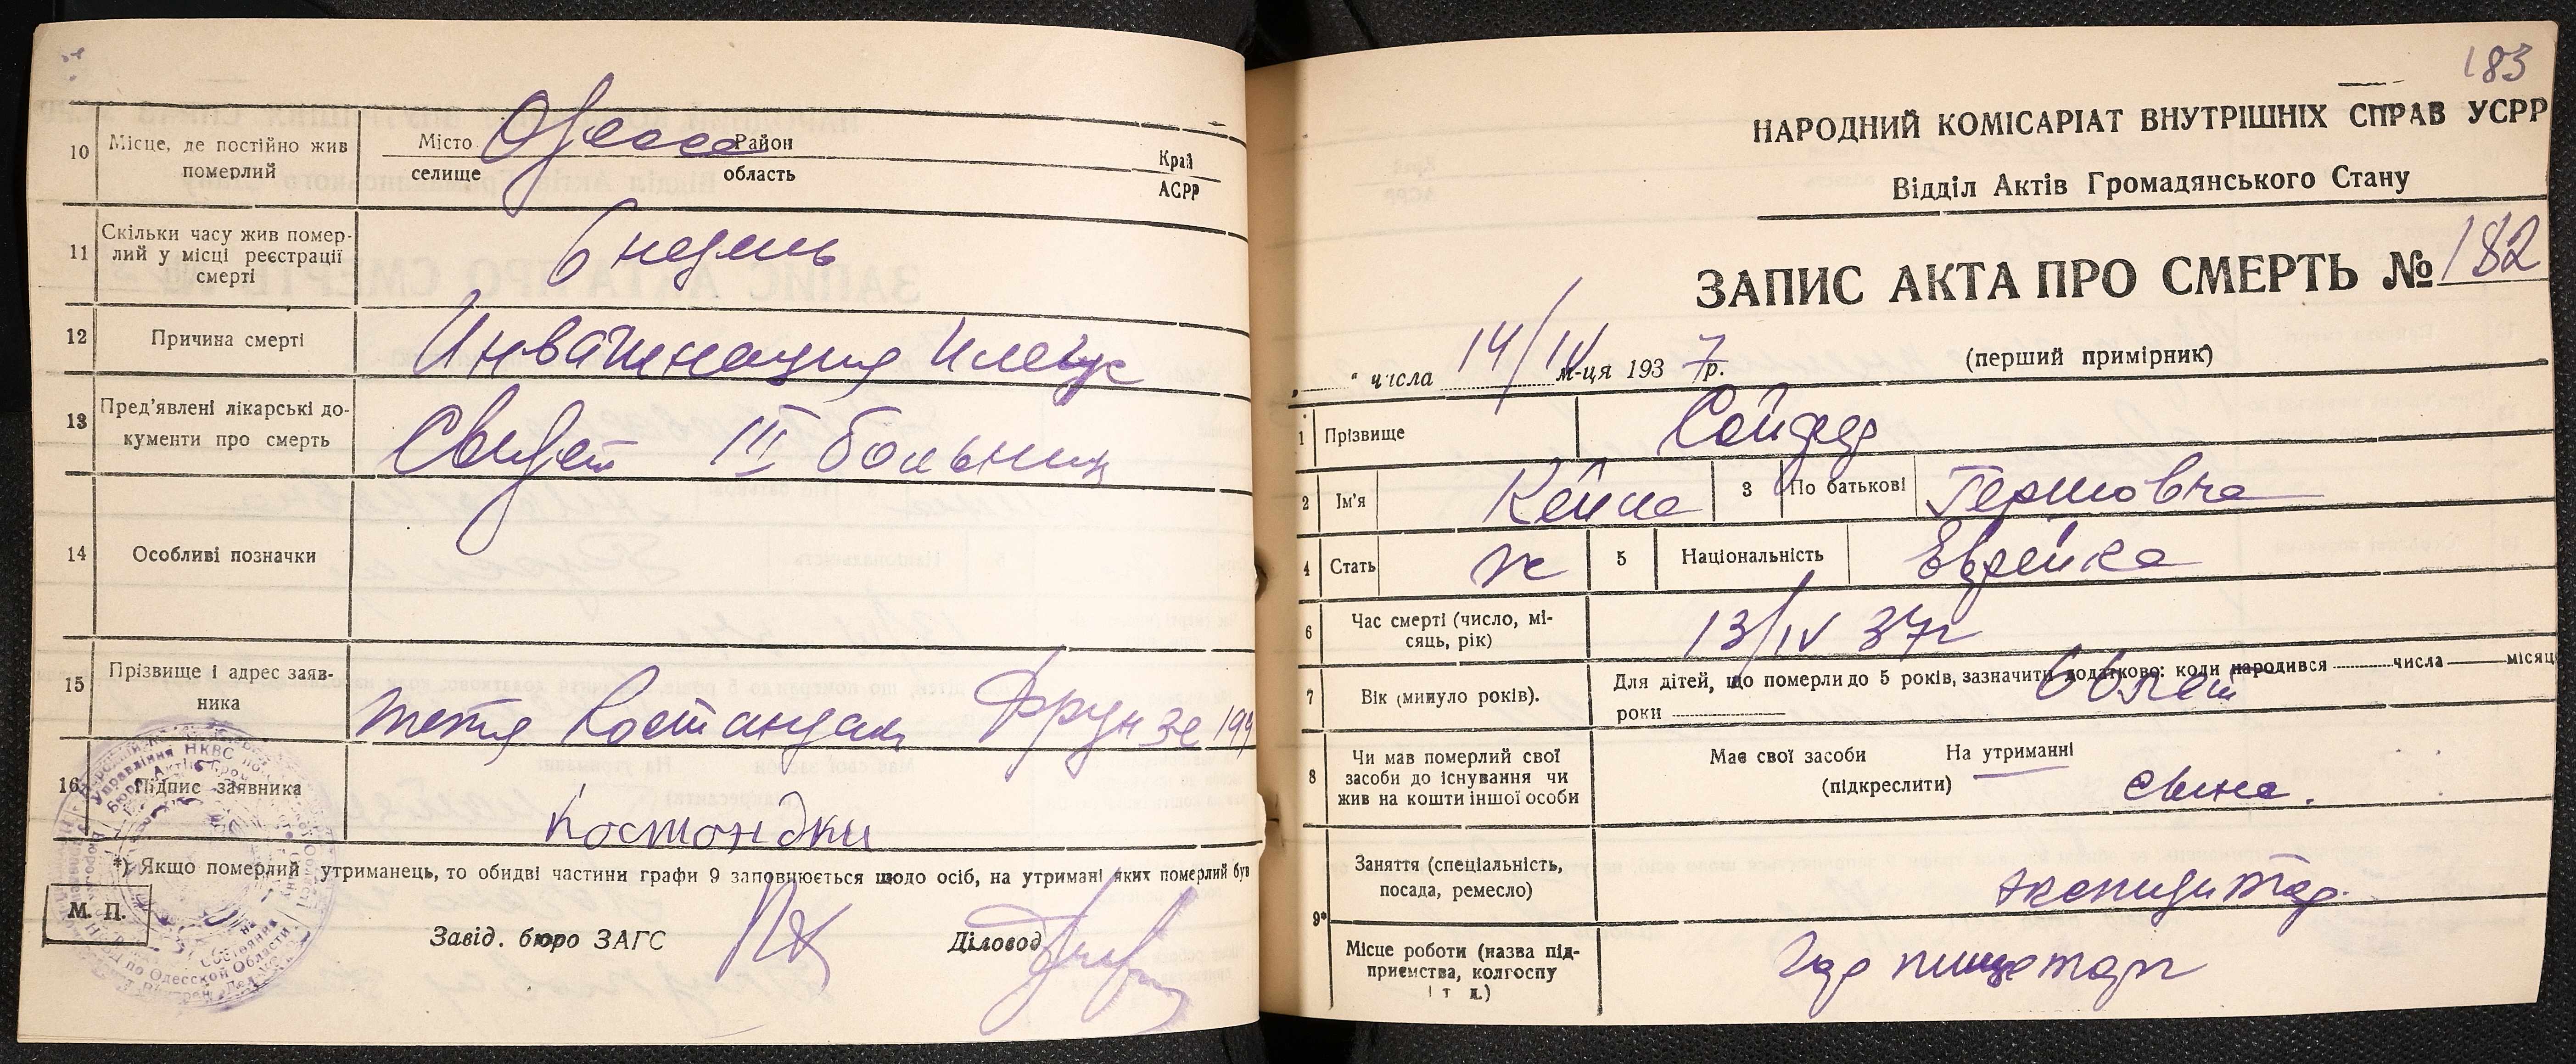 10
Місце, де постійно жив
померлий
Місто Одесса Район
селище область
Край
АСРР
11
Скільки часу жив помер-
лий у місці реєстрації
смерті
6 недель
12
Причина смерті
Инвагинация
13
Пред'явлені лікарські до-
кументи про смерть
Свидет III больниц
14
Особливі позначки
15
Прізвище і адрес заяв-
ника
Фрунзе 199
16
Підпис заявника
*) Якщо померлий утриманець, то обидві частини графи 9 заповнюється щодо осіб, на утримані яких померлий був
М. П.
Завід. бюро ЗАГС
Діловод
183
НАРОДНИЙ КОМІСАРІАТ ВНУТРІШНІХ СПРАВ УСРР
Відділ Актів Громадянського Стану
ЗАПИС АКТА ПРО СМЕРТЬ № 182
„ “ числа 14/IV м-ця 1937 р.
(перший примірник)
1 Прізвище
2 Ім'я Кейла 3 По батькові Гершовна
4 Стать ж 5 Національність Еврейка
6
Час смерті (число, мі-
сяць, рік)
13/IV 37г
7 Вік (минуло років).
Для дітей, що померли до 5 років, зазначити додатково: коли народився числа місяц
роки
66 лет
8
Чи мав померлий свої
засоби до існування чи
жив на кошти іншої особи
Має свої засоби На утриманні
(підкреслити)
сына.
9*
Заняття (спеціальність,
посада, ремесло)
экспедитор.
Місце роботи (назва під-
приємства, колгоспу
і т д.)
Гор пищеторг